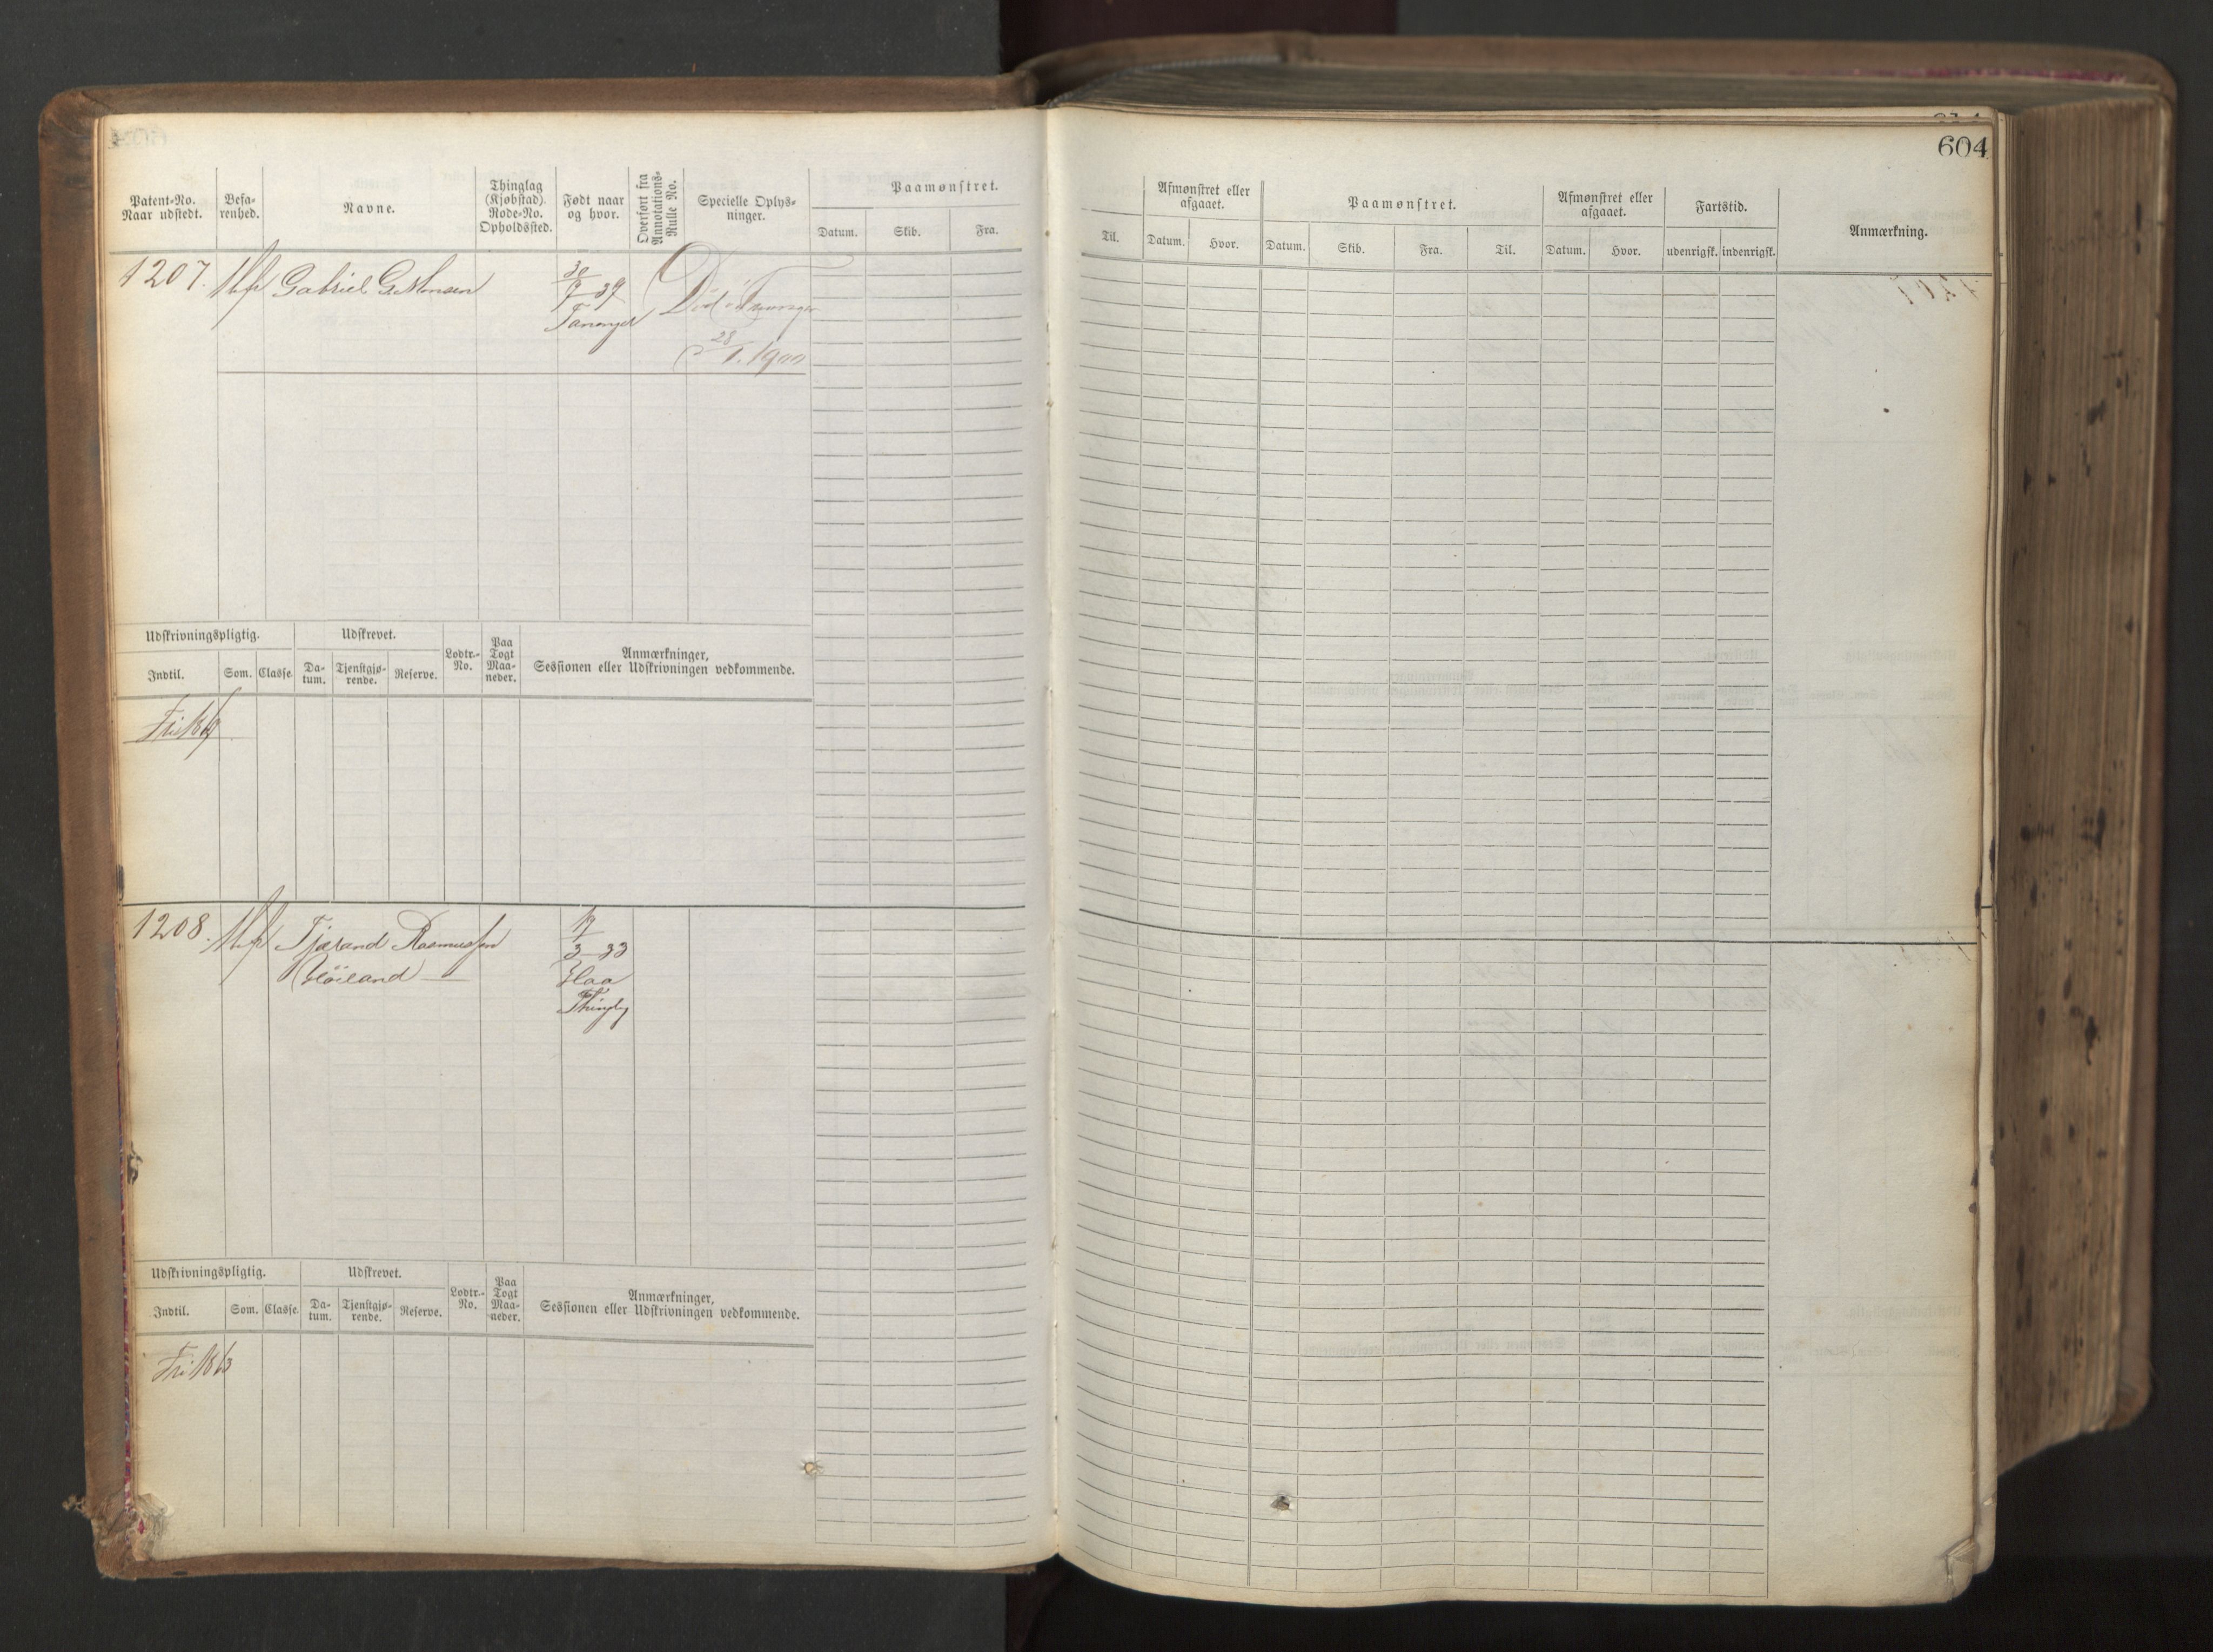 604
Patent-No. Naar udstedt.
Befarenhed.
Navne.
Thinglag (Kjøbstad). Rode-No. Opholdssted.
Født naar og hvor.
Overført fra Annotations-Rulle No.
Specielle Oplysninger.
Paamønstret.
Datum. Skib. Fra.
Til.
Afmønstret eller afgaaet.
Datum. Hvor.
Paamønstret.
Datum. Skib. Fra. Til.
Afmønstret eller afgaaet.
Datum. Hvor.
Fartstid.
udenrigsk. indenrigsk.
Anmærkning.
1207. Gabriel G. Monsen
30/9 39
Tananger
Død i Tananger
28/1. 1900
Udskrivningspligtig. Udskrevet. Lodtr.-No. Paa Togt Maaneder. Anmærkninger, Sessionen eller Udskrivningen vedkommende.
Indtil. Som. Classe. Datum. Tjenstgjørende. Reserve.
Fri 1869
1208. Tjæland Rasmussen
Høiland
3 33
Haa
Thinglg
Udskrivningspligtig. Udskrevet. Lodtr.-No. Paa Togt Maaneder. Anmærkninger, Sessionen eller Udskrivningen vedkommende.
Indtil. Som. Classe. Datum. Tjenstgjørende. Reserve.
Fri 1863